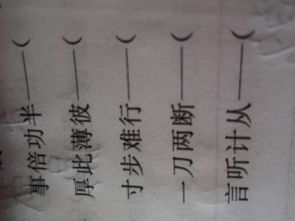 事倍功半——(
厚此薄彼——(
寸步难行——(
一刀两断——(
言听计从——(